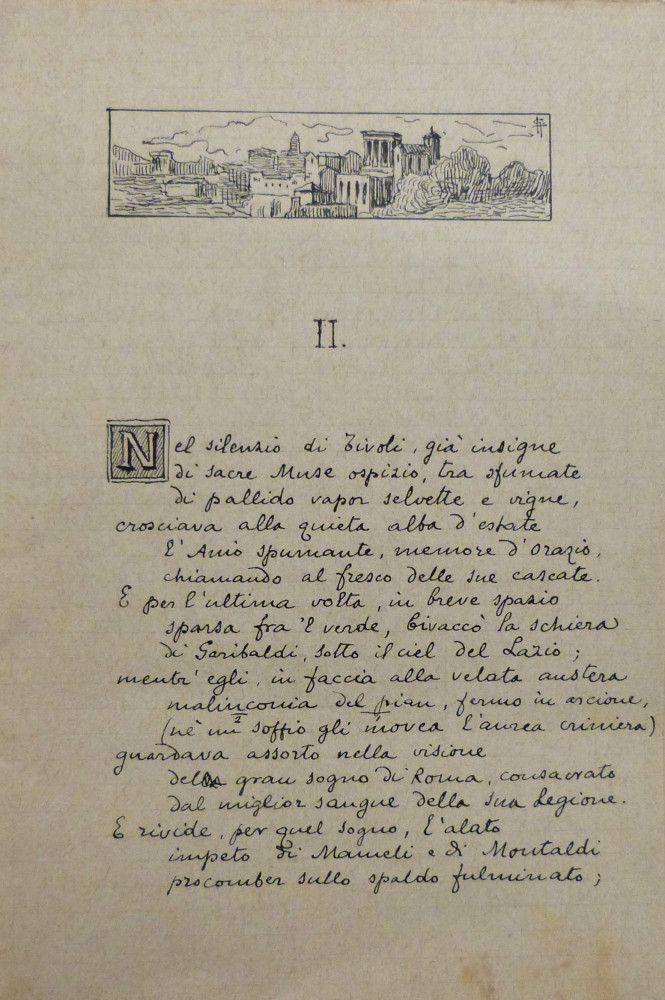 II.
Nel silenzio di Tivoli, già insigne
di sacre Muse ospizio, tra sfumate
di pallido vapor selvette e vigne,
crosciava alla quieta alba d'estate
l'Anio spumante, memore d'Orazio,
chiamando al fresco delle sue cascate.
E per l'ultima volta, in breve spazio
sparsa fra 'l verde, bivaccò la schiera
di Garibaldi, sotto il ciel del Lazio;
mentr' egli, in faccia alla velata austera
malinconia del pian, fermo in arcione,
(nè soffio gli movea l'aurea criniera)
guardava assorto nella visione
del gran sogno di Roma, consacrato
dal miglior sangue della sua Legione.
E rivide, per quel sogno, l'alato
impeto di Mameli e di Montaldi
procomber sullo spaldo fulminato;